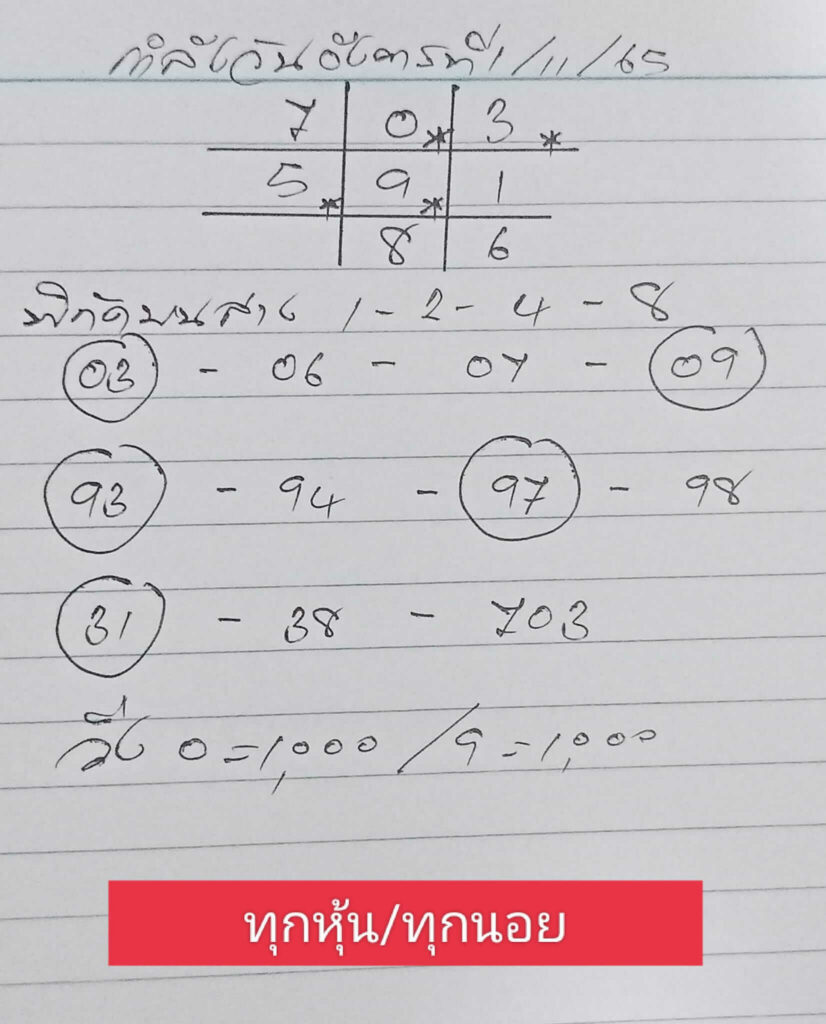 กำลังวันอังคารที่ 1/11/65
7 0* 3*
5* 9* 1
8 6
พิกัดบนล่าง 1-2-4-8
03 - 06 - 07 - 09
93 - 94 - 97 - 98
31 - 38 - 703
วิ่ง 0=1,000/9=1,000
ทุกหุ้น/ทุกนอย